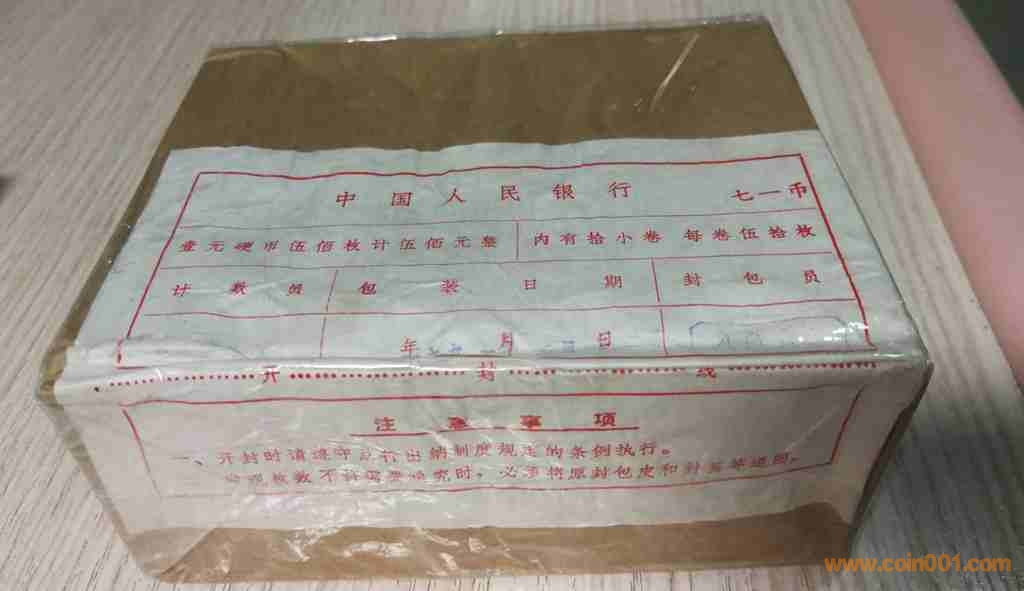 中国人民银行 七一币
壹元硬币伍佰枚计伍佰元整 内有拾小卷 每卷伍拾枚
计数员 包装日期 封包员
年 月 日
开封线
注意事项
一、开封时请遵守总行出纳制度规定的条例执行。
发现枚数不符需要追究时，必须将原封包皮和封签等退回。
www.coin001.com